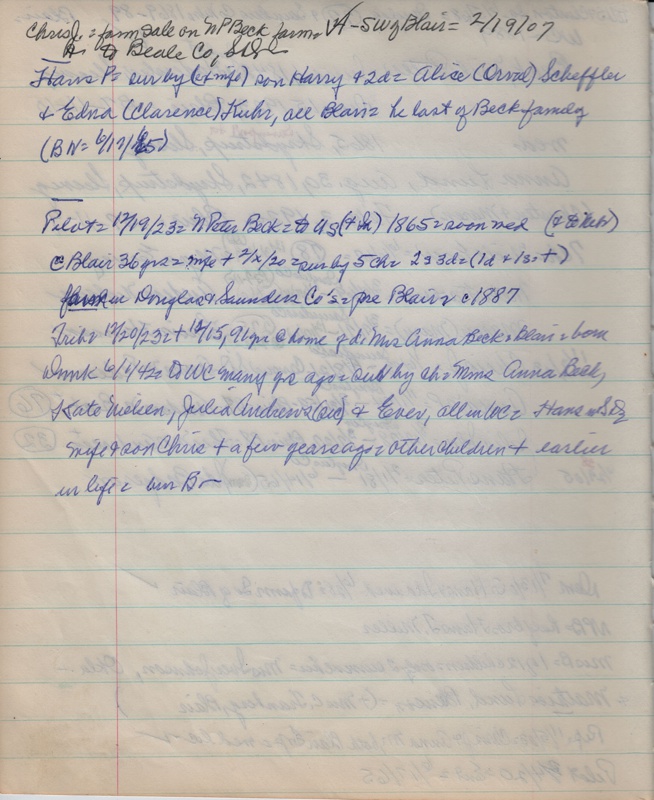 Chris J. = farm sale on NP Beck farm = A - SW of Blair = 2/19/07
to Beale Co, SD
Hans P = sur by (+ wife) son Harry & 2d = Alice (Orval) Scheffler
& Edna (Clarence) Kuhr, all Blair = he last of Beck family
(BN = 6/17/65)
Pilot = 12/19/23 = N Peter Beck = to US (+ ) 1865 = soon wed (& to Neb)
@ Blair 36 yrs = wife + 2/x/20 = sur by 5 ch = 2s 3d = (1d + 1s +)
farm in Douglas & Saunders Co's = pre Blair c 1887
Trib = 12/20/23 = + 12/15, 91 yr @ home of d = Mrs Anna Beck = Blair = born
Dnmk 6/1/42 = to WC many yr ago = sur by ch = Mmes Anna Beck,
Kate Nielsen, Julia Andrews (sic) & Ever, all in WC = Hans in SD
wife & son Chris + a few years ago = other children + earlier
in life = bur B